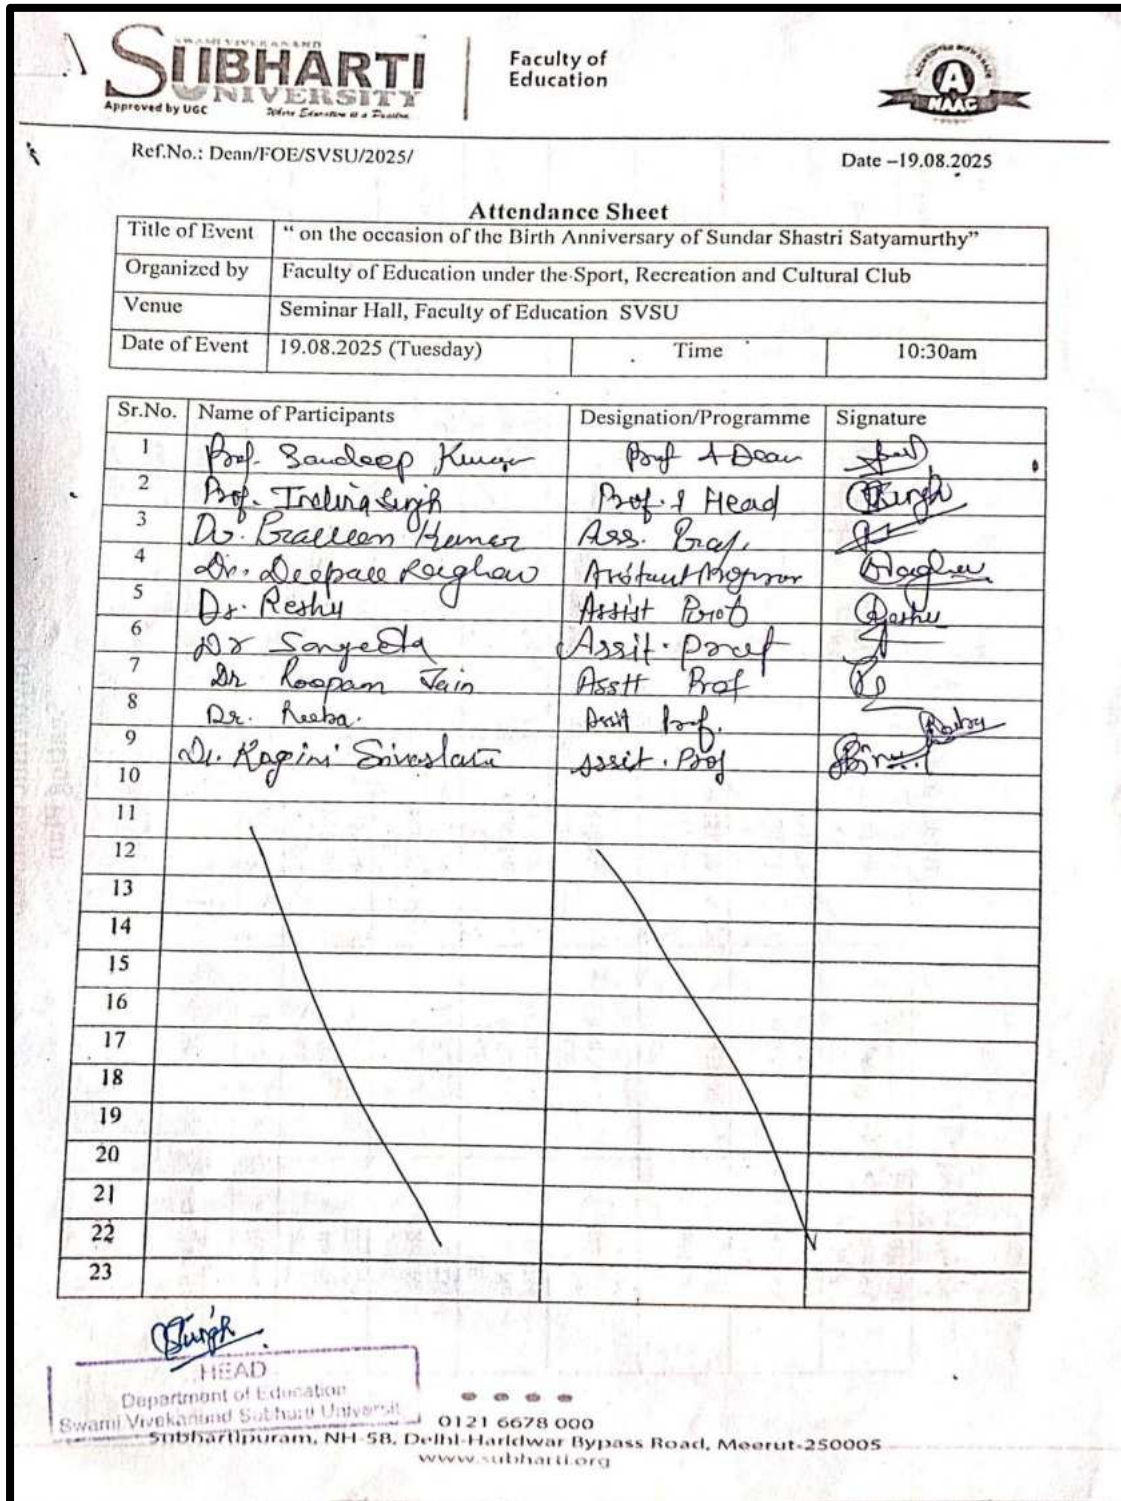 SWAMI VIVEKANAND
SUBHARTI
UNIVERSITY
Approved by UGC
Where Education is a Passion
Faculty of
Education
ACCREDITED WITH A GRADE
A
NAAC
Ref.No.: Dean/FOE/SVSU/2025/
Date –19.08.2025
Attendance Sheet
Title of Event “ on the occasion of the Birth Anniversary of Sundar Shastri Satyamurthy”
Organized by Faculty of Education under the Sport, Recreation and Cultural Club
Venue Seminar Hall, Faculty of Education SVSU
Date of Event 19.08.2025 (Tuesday) Time 10:30am
Sr.No. Name of Participants Designation/Programme Signature
1 Prof. Sandeep Kumar Prof & Dean
2 Prof. Indira Singh Prof. & Head Singh
3 Dr. Praveen Kumar Ass. Prof.
4 Dr. Deepali Raghav Assistant Professor Raghav
5 Dr. Reshu Assist Prof Reshu
6 Dr Sangeeta Assit. Prof
7 Dr Roopam Jain Asstt Prof
8 Dr. Reeba. Assit Prof.
9 Dr. Ragini Srivastava Assit. Prof
10
11
12
13
14
15
16
17
18
19
20
21
22
23
Singh
HEAD
Department of Education
Swami Vivekanand Subharti Universit
0121 6678 000
Subhartipuram, NH-58, Delhi-Haridwar Bypass Road, Meerut-250005
www.subharti.org